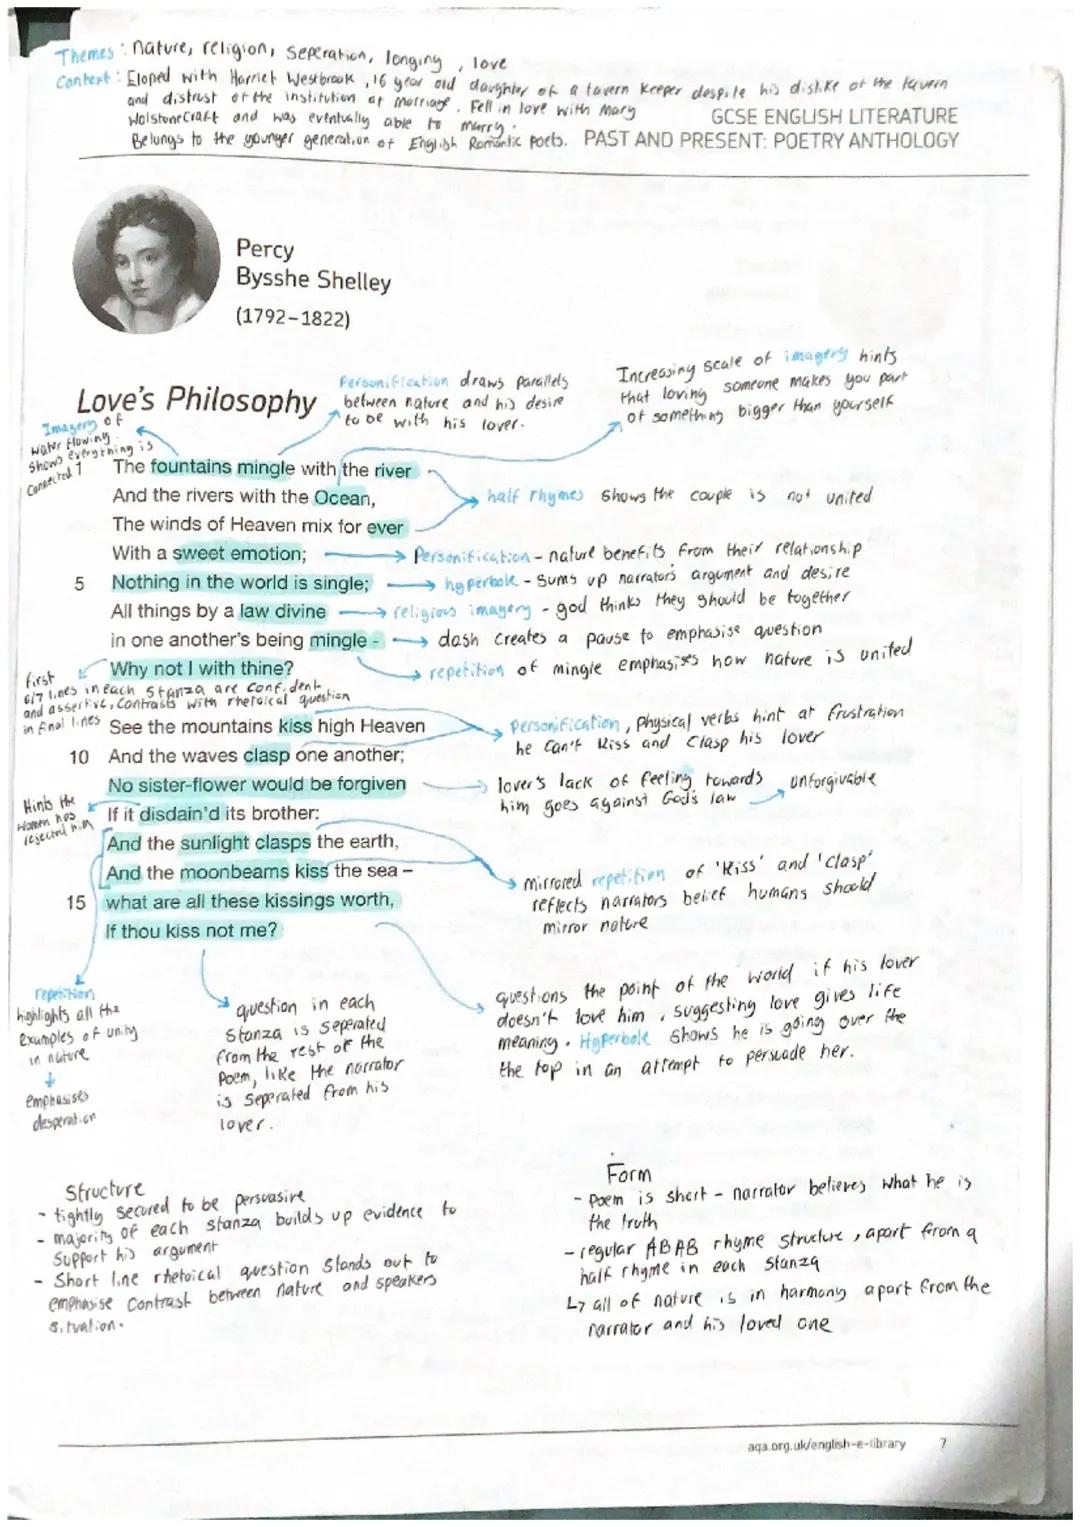 Themes : nature, religion, Seperation, longing, love
Context : Eloped with Harriet Westbrook, 16 year old daughter of a tavern keeper despite his dislike of the tavern
and distrust of the institution of marriage. Fell in love with Mary
Wolstonecraft and was eventually able to marry.
Belongs to the younger generation of English Romantic poets.
GCSE ENGLISH LITERATURE
PAST AND PRESENT: POETRY ANTHOLOGY
Percy
Bysshe Shelley
(1792–1822)
Love's Philosophy
Personification draws parallels
between nature and his desire
to be with his lover.
Increasing scale of imagery hints
that loving someone makes you part
of something bigger than yourself
Imagery of
water flowing
shows everything is
connected
1 The fountains mingle with the river
And the rivers with the Ocean,
The winds of Heaven mix for ever
With a sweet emotion;
5 Nothing in the world is single;
All things by a law divine
in one another's being mingle -
Why not I with thine?
half rhymes shows the couple is not united
Personification - nature benefits from their relationship
hyperbole - sums up narrators argument and desire
religious imagery - god thinks they should be together
dash creates a pause to emphasise question
repetition of mingle emphasises how nature is united
first
6/7 lines in each stanza are confident
and assertive, contrasts with rhetoical question
in final lines
See the mountains kiss high Heaven
10 And the waves clasp one another;
No sister-flower would be forgiven
If it disdain'd its brother:
And the sunlight clasps the earth,
And the moonbeams kiss the sea –
15 what are all these kissings worth,
If thou kiss not me?
Personification, physical verbs hint at frustration
he can't kiss and clasp his lover
lover's lack of feeling towards
him goes against God's law
unforgivable
Hints the
women has
rejected him
mirrored repetition of 'kiss' and 'clasp'
reflects narrators belief humans should
mirror nature
repetition
highlights all the
examples of unity
in nature
emphasises
desperation
question in each
stanza is seperated
from the rest of the
poem, like the narrator
is seperated from his
lover.
questions the point of the world if his lover
doesn't love him, suggesting love gives life
meaning. Hyperbole shows he is going over the
the top in an attempt to persuade her.
Structure
- tightly secured to be persuasive
- majority of each stanza builds up evidence to
support his argument
- Short line rhetoical question stands out to
emphasise contrast between nature and speakers
situation.
Form
- Poem is short - narrator believes what he is
the truth
- regular ABAB rhyme structure, apart from a
half rhyme in each stanza
↳ all of nature is in harmony apart from the
narrator and his loved one
aqa.org.uk/english-e-library 7